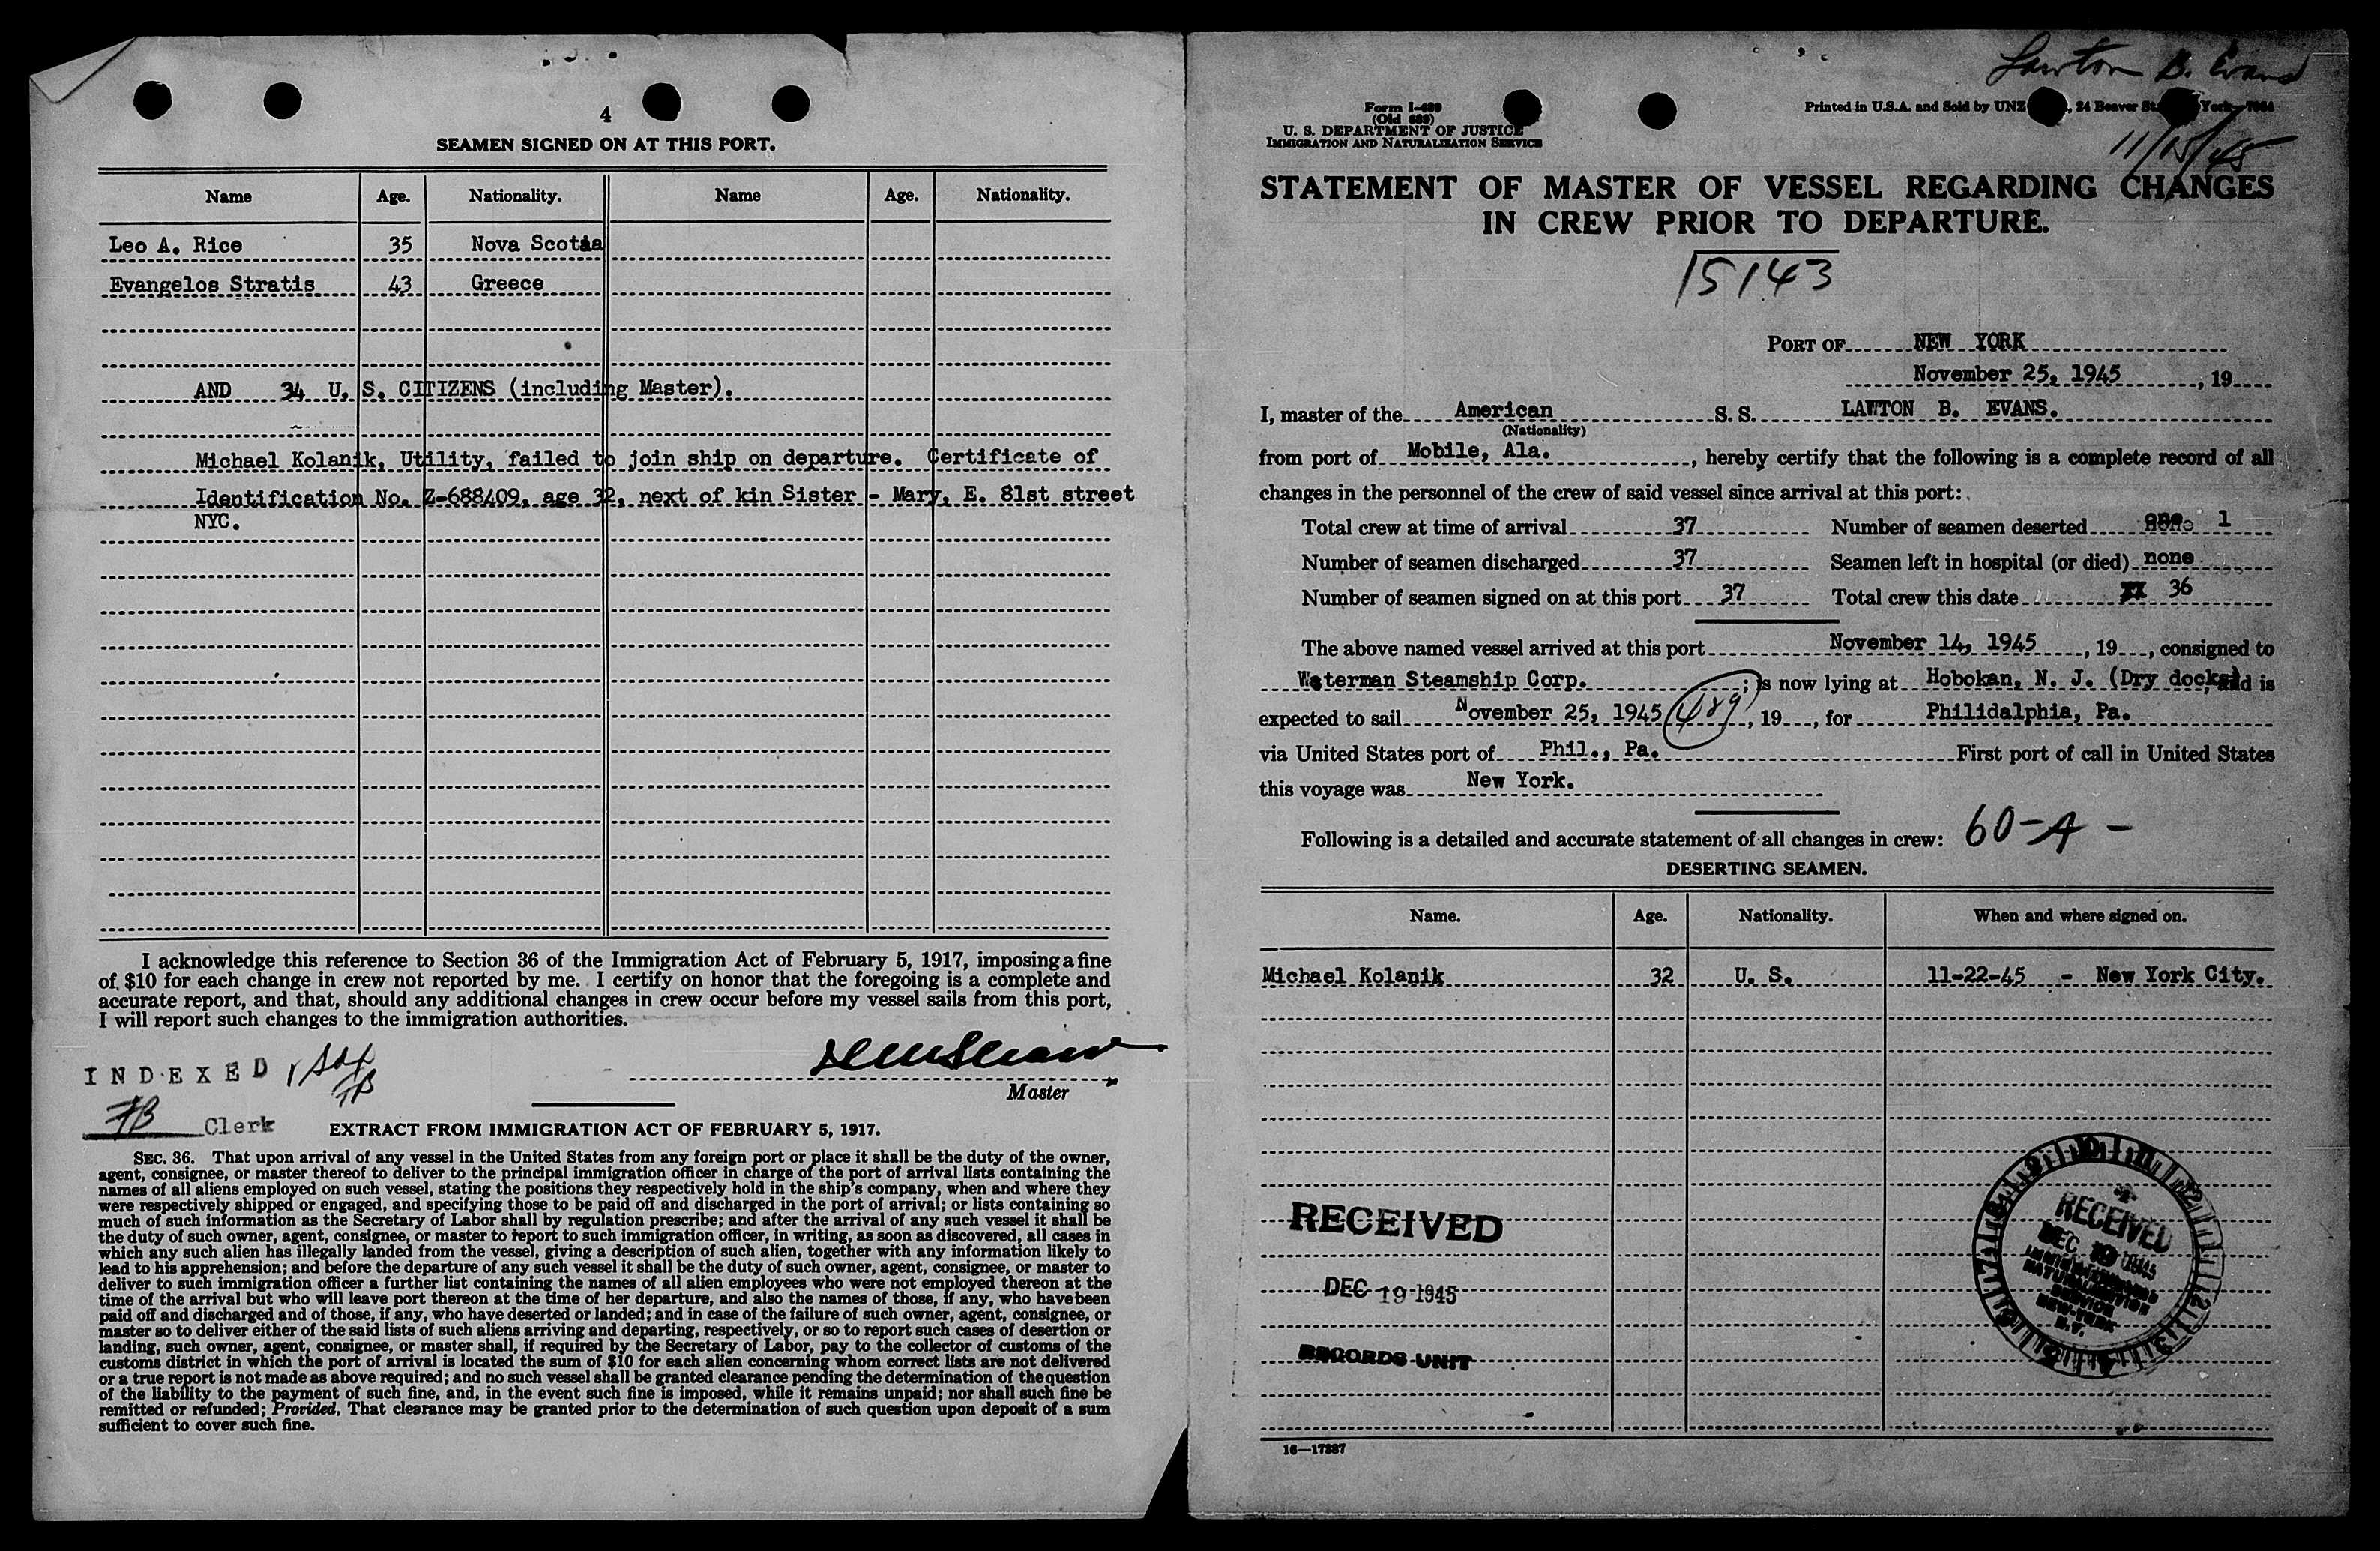 4
SEAMEN SIGNED ON AT THIS PORT.
Name Age. Nationality. Name Age. Nationality.
Leo A. Rice 35 Nova Scotia
Evangelos Stratis 43 Greece
AND 34 U. S. CITIZENS (including Master).
Michael Kolanik, Utility, failed to join ship on departure. Certificate of
Identification No. Z-688409, age 32, next of kin Sister - Mary, E. 81st street
NYC.
I acknowledge this reference to Section 36 of the Immigration Act of February 5, 1917, imposing a fine
of $10 for each change in crew not reported by me. I certify on honor that the foregoing is a complete and
accurate report, and that, should any additional changes in crew occur before my vessel sails from this port,
I will report such changes to the immigration authorities.
INDEXED
Master
FB Clerk
EXTRACT FROM IMMIGRATION ACT OF FEBRUARY 5, 1917.
SEC. 36. That upon arrival of any vessel in the United States from any foreign port or place it shall be the duty of the owner,
agent, consignee, or master thereof to deliver to the principal immigration officer in charge of the port of arrival lists containing the
names of all aliens employed on such vessel, stating the positions they respectively hold in the ship's company, when and where they
were respectively shipped or engaged, and specifying those to be paid off and discharged in the port of arrival; or lists containing so
much of such information as the Secretary of Labor shall by regulation prescribe; and after the arrival of any such vessel it shall be
the duty of such owner, agent, consignee, or master to report to such immigration officer, in writing, as soon as discovered, all cases in
which any such alien has illegally landed from the vessel, giving a description of such alien, together with any information likely to
lead to his apprehension; and before the departure of any such vessel it shall be the duty of such owner, agent, consignee, or master to
deliver to such immigration officer a further list containing the names of all alien employees who were not employed thereon at the
time of the arrival but who will leave port thereon at the time of her departure, and also the names of those, if any, who have been
paid off and discharged and of those, if any, who have deserted or landed; and in case of the failure of such owner, agent, consignee, or
master so to deliver either of the said lists of such aliens arriving and departing, respectively, or so to report such cases of desertion or
landing, such owner, agent, consignee, or master shall, if required by the Secretary of Labor, pay to the collector of customs of the
customs district in which the port of arrival is located the sum of $10 for each alien concerning whom correct lists are not delivered
or a true report is not made as above required; and no such vessel shall be granted clearance pending the determination of the question
of the liability to the payment of such fine, and, in the event such fine is imposed, while it remains unpaid; nor shall such fine be
remitted or refunded; Provided, That clearance may be granted prior to the determination of such question upon deposit of a sum
sufficient to cover such fine.
Lawton B. Evans
Form I-489
(Old 689)
U. S. DEPARTMENT OF JUSTICE
IMMIGRATION AND NATURALIZATION SERVICE
Printed in U.S.A. and Sold by UNZ , 24 Beaver St. York
11/15/45
STATEMENT OF MASTER OF VESSEL REGARDING CHANGES
IN CREW PRIOR TO DEPARTURE.
15143
PORT OF NEW YORK
November 25, 1945, 19
I, master of the American S. S. LAWTON B. EVANS.
(Nationality)
from port of Mobile, Ala., hereby certify that the following is a complete record of all
changes in the personnel of the crew of said vessel since arrival at this port:
Total crew at time of arrival 37 Number of seamen deserted one 1
Number of seamen discharged 37 Seamen left in hospital (or died) none
Number of seamen signed on at this port 37 Total crew this date 36
The above named vessel arrived at this port November 14, 1945, 19, consigned to
Waterman Steamship Corp.; is now lying at Hobokan, N. J. (Dry docks) and is
expected to sail November 25, 1945 489, 19, for Philidalphia, Pa.
via United States port of Phil., Pa. First port of call in United States
this voyage was New York.
Following is a detailed and accurate statement of all changes in crew: 60-A-
DESERTING SEAMEN.
Name. Age. Nationality. When and where signed on.
Michael Kolanik 32 U. S. 11-22-45 - New York City.
RECEIVED
DEC 19 1945
RECORDS UNIT
RECEIVED
DEC 19 1945
IMMIGRATION AND
NATURALIZATION
SERVICE
NEW YORK
N.Y.
16—17387